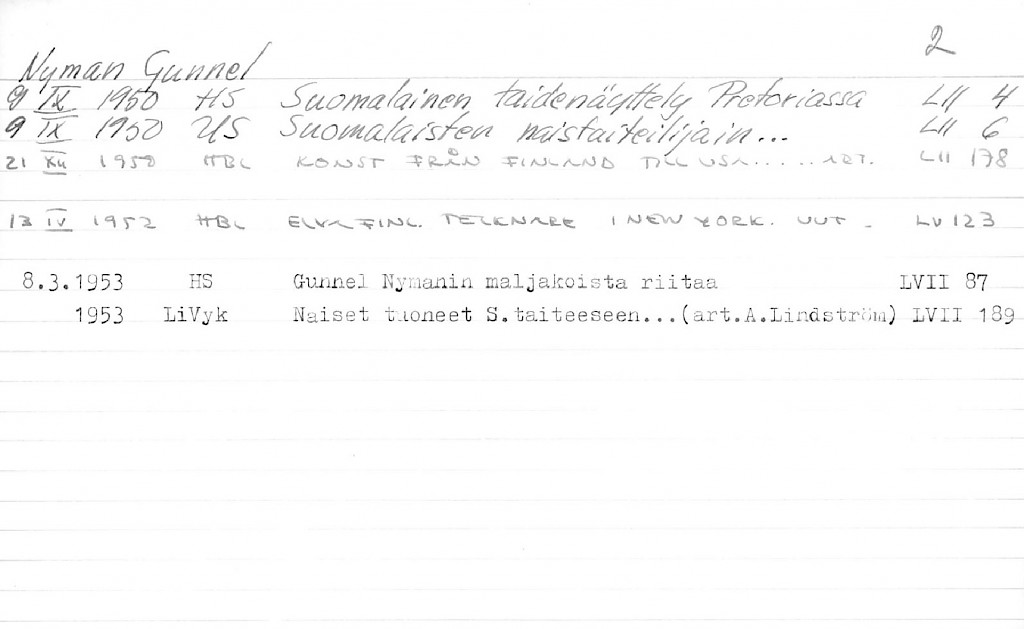 2
Nyman Gunnel
9 IX 1950 HS Suomalainen taidenäyttely Pretoriassa LII 4
9 IX 1950 US Suomalaisten naistaiteilijain... LII 6
21 XII 1950 HBL KONST FRÅN FINLAND TILL USA..... ART. LII 178
13 IV 1952 HBL ELVA FINL. TECKNARE I NEW YORK. UUT. LV 123
8.3.1953 HS Gunnel Nymanin maljakoista riitaa LVII 87
1953 LiVyk Naiset tuoneet S.taiteeseen...(art.A.Lindström) LVII 189